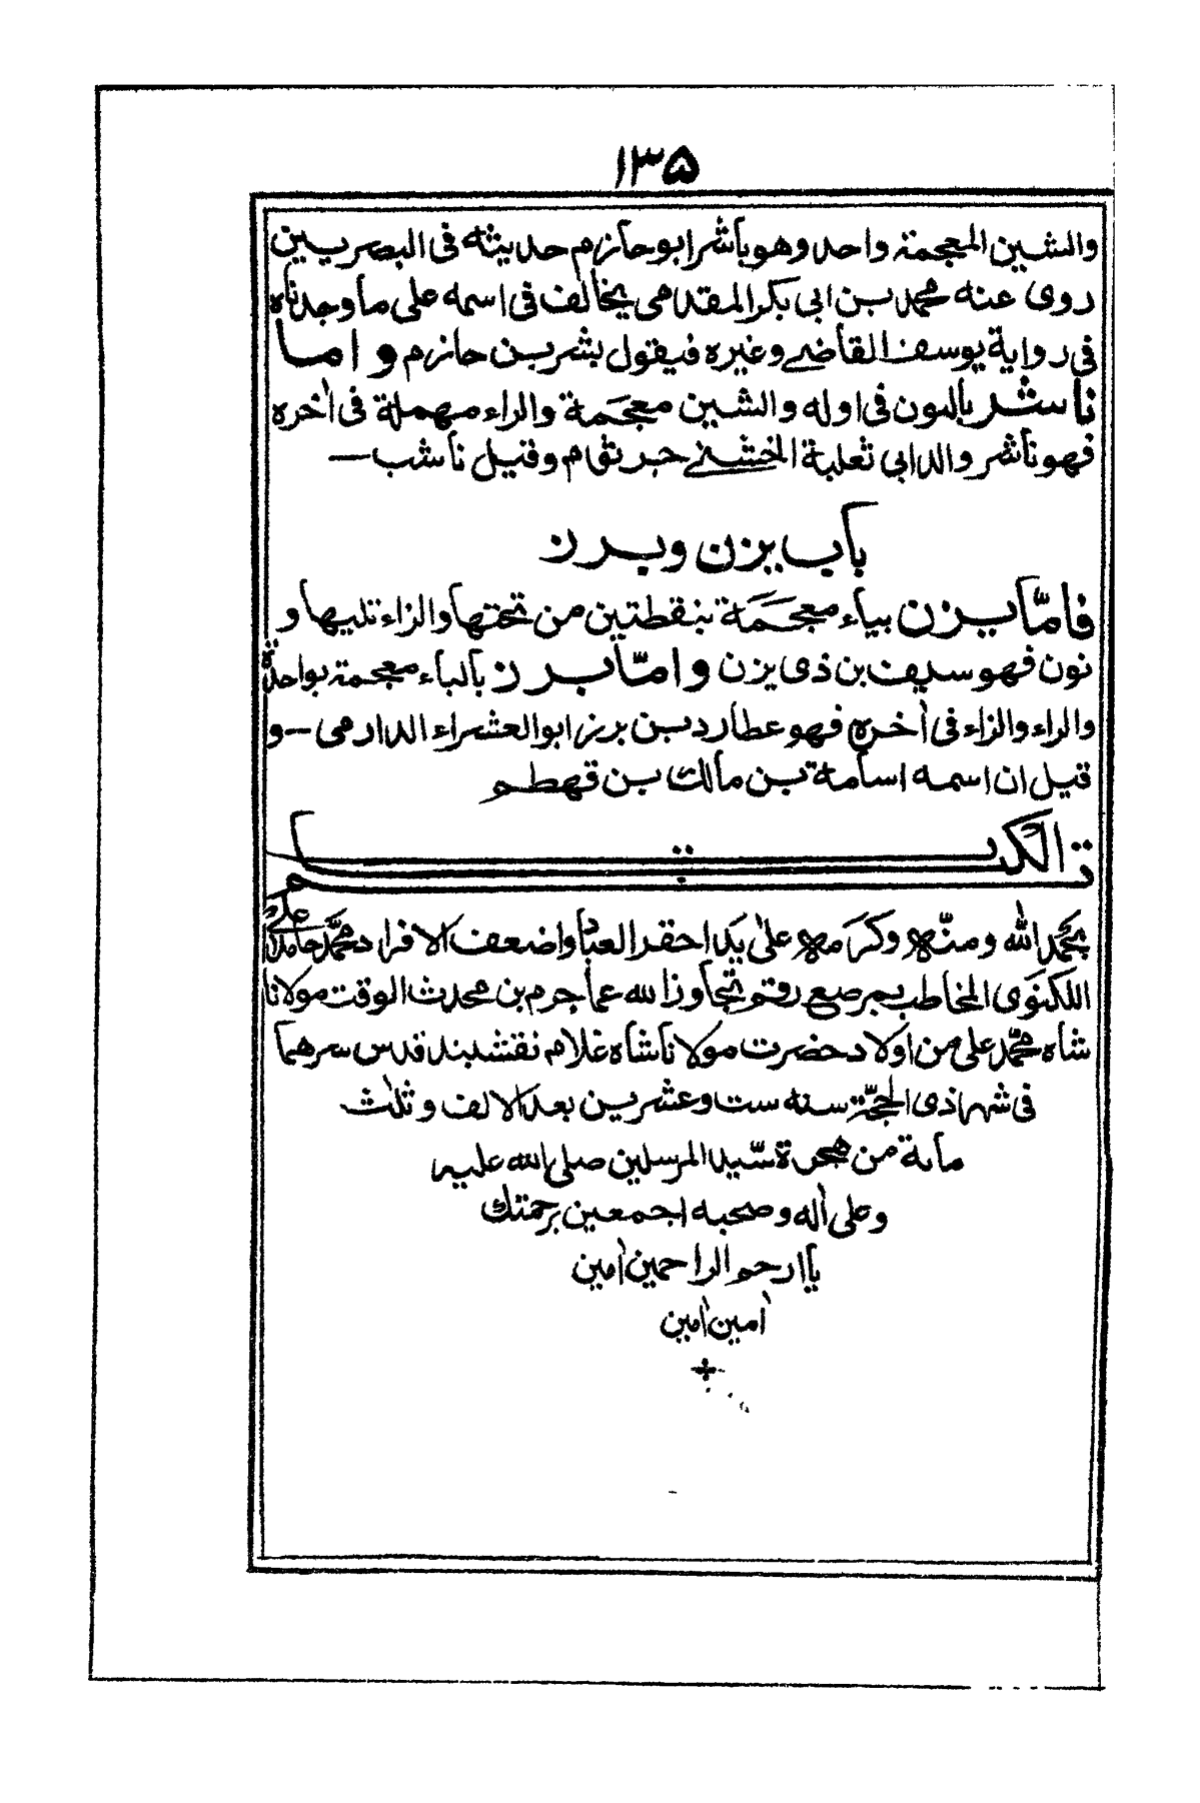 ١٣۵
والشين المعجمة واحد وهو باشر ابو حازم حديثه فى البصريين
روى عنه محمد بن ابى بكر المقدمى يخالف فى اسمه على ما وجدناه
فى رواية يوسف القاضے وغيره فيقول بشر بن حازم واما
ناشر بالنون فى اوله والشين معجمة والراء مهملة فى اٰخره
فهو ناشر والد ابى ثعلبة الخشنے جرثوم وقيل ناشب —
باب يزن وبرز
فامّا يزن بياء معجمة بنقطتين من تحتها والزاء تليها و
نون فهو سيف بن ذى يزن وامّا برز بالباء معجمة بواحدة
والراء والزاء فى اٰخره فهو عطارد بن برز ابو العشراء الدارمى — و
قيل ان اسمه اسامة بن مالك بن قهطم
تم الكتاب
بحمد الله ومنّه وكرمه علىٰ يد احقر العباد واضعف الافراد محمّد حامد على
اللكنوى المخاطب بمرصع رقم تجاوز الله عما جرم بن محدث الوقت مولانا
شاه محمّد على من اولاد حضرت مولانا شاه غلام نقشبند قدس سرهما
فى شهر ذى الحجّة سنه ست وعشرين بعد الالف وثلٰث
مأىة من هجرة سيّد المرسلين صلى الله عليه
وعلى اٰله وصحبه اجمعين برحمتك
يا ارحم الراحمين اٰمين
اٰمين اٰمين